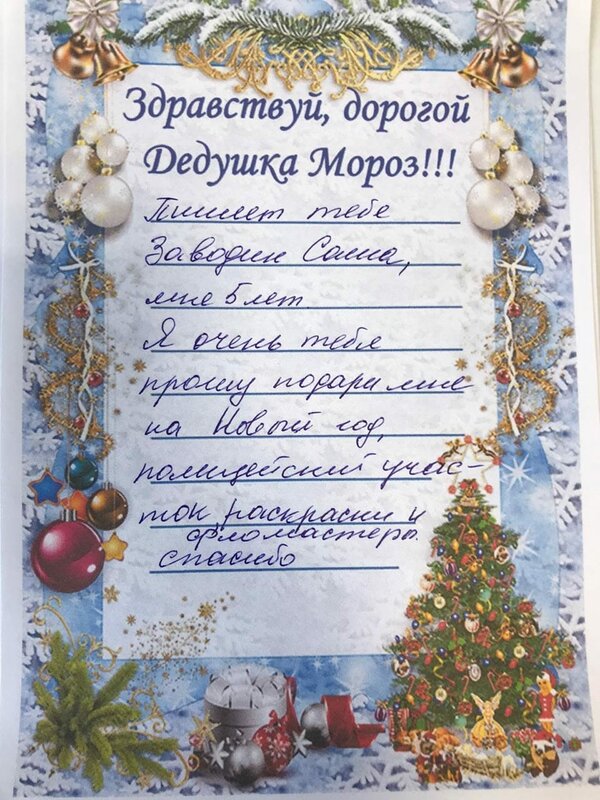 Здравствуй, дорогой
Дедушка Мороз!!!
Пишет тебе
Заводин Саша,
мне 5 лет.
Я очень тебя
прошу подари мне
на Новый год,
полицейский учас-
ток, раскраски и
фломастеры.
спасибо